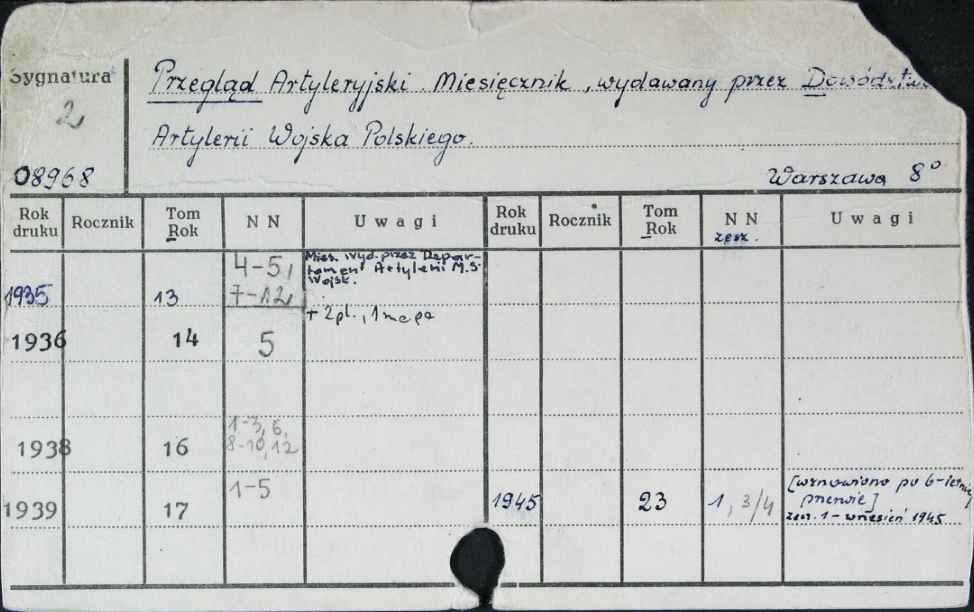 Sygnatura
2
08968
Przegląd Artyleryjski. Miesięcznik, wydawany przez Dowództwo
Artylerii Wojska Polskiego.
Warszawa 8°
Rok druku Rocznik Tom Rok NN Uwagi Rok druku Rocznik Tom Rok NN zesz. Uwagi
1935 13 4-5, 7-12 Mies. wyd. przez Depar-
tament Artylerii M.S.
Wojsk.
+ 2 pl., 1 mapa
1936 14 5
1938 16 1-3, 6,
8-10, 12
1939 17 1-5
1945 23 1, 3/4 [wznowiono po 6-letniej
przerwie]
zesz. 1 - wrzesień 1945